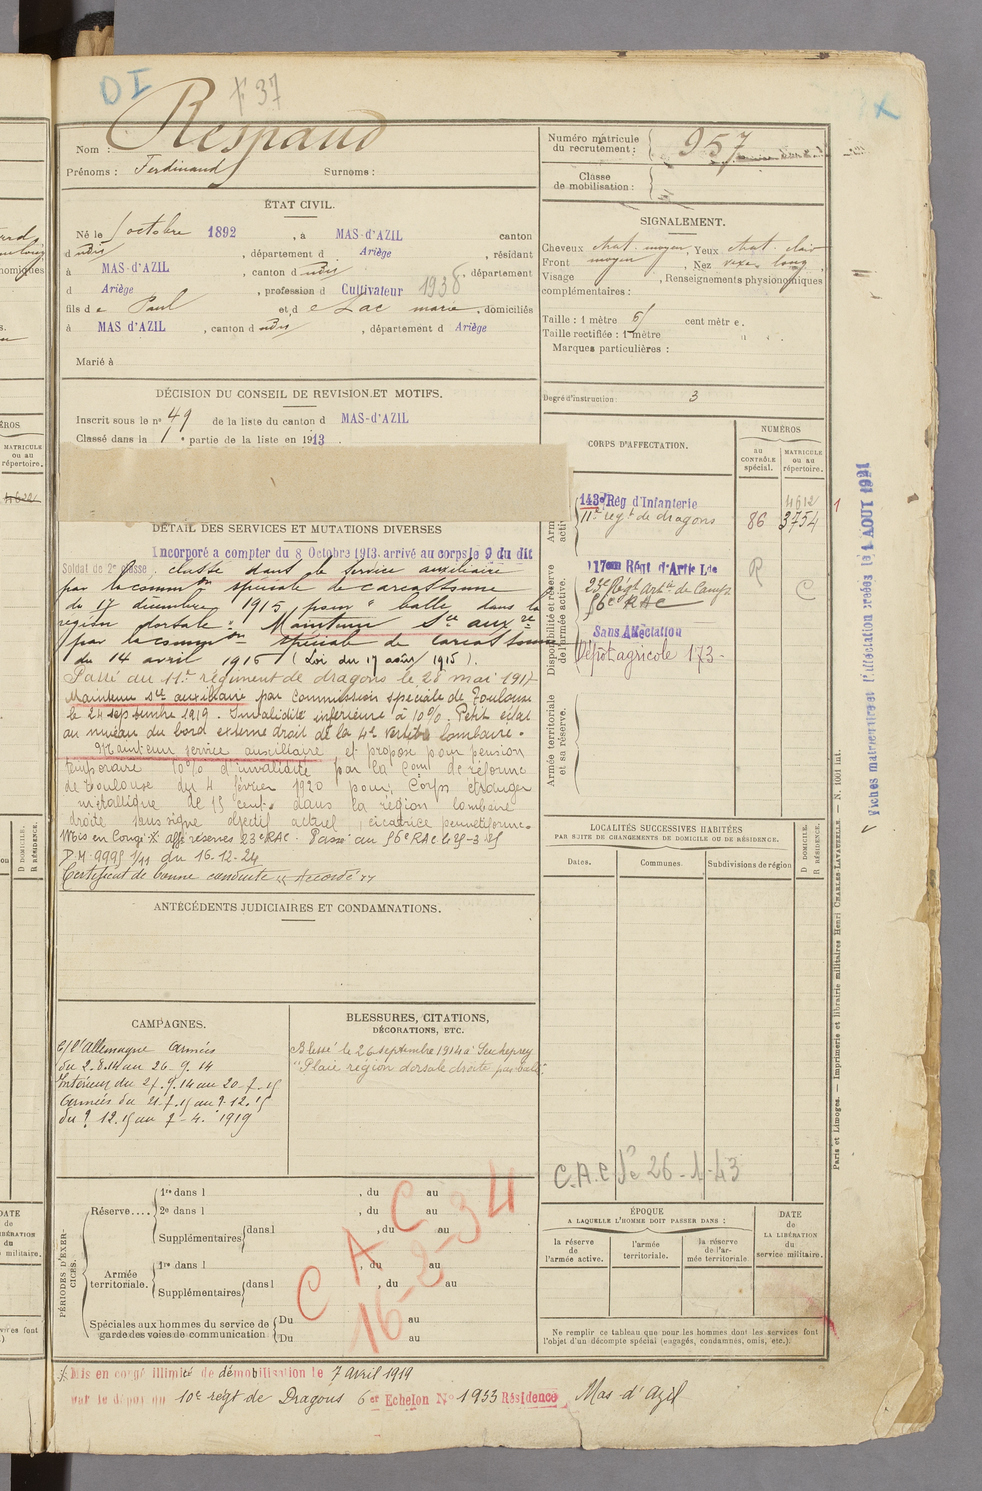 DI
37
Nom : Respaud
Prénoms : Ferdinand Surnoms :
Numéro matricule du recrutement : 957
Classe de mobilisation :
ÉTAT CIVIL.
Né le 1 octobre 1892, à MAS-D'AZIL canton
d udis, département d Ariège, résidant
à MAS-D'AZIL, canton d udis, département
d Ariège, profession d Cultivateur 1938
fils d e Paul et d e Lac marie, domiciliés
à MAS D'AZIL, canton d udis, département d Ariège
Marié à
SIGNALEMENT.
Cheveux chat. moyen, Yeux chat. clair
Front moyen, Nez vexe long
Visage , Renseignements physionomiques
complémentaires :
Taille : 1 mètre 61 centimètres.
Taille rectifiée : 1 mètre
Marques particulières :
Degré d'instruction : 3
DÉCISION DU CONSEIL DE REVISION ET MOTIFS.
Inscrit sous le n° 49 de la liste du canton d MAS-d'AZIL
Classé dans la 1e partie de la liste en 1913.
DÉTAIL DES SERVICES ET MUTATIONS DIVERSES
Incorporé a compter du 8 Octobre 1913, arrivé au corps le 9 du dit
Soldat de 2e classe, classé dans le service auxiliaire
par la comm on spéciale de carcassonne
du 17 décembre 1915 pour "balle dans la
région dorsale". Maintenu Sce aux re
par la comm on spéciale de carcassonne
du 14 avril 1916 (Loi du 17 août 1915).
Passé au 11e régiment de dragons le 28 mai 1917
Maintenu sce auxiliaire par Commission spéciale de Toulouse
le 24 septembre 1919. Invalidité inférieure à 10%. Petit éclat
au niveau du bord externe droit de la 4e vertèbre lombaire.
Maintenu service auxiliaire et proposé pour pension
temporaire 10% d'invalidité par la Com de réforme
de Toulouse du 4 février 1920 pour, Corps étranger
métallique de 15 cent. dans la région lombaire
droite sans signe objectif actuel, cicatrice punctiforme.
Mis en Congé * affé réserves 23e RAC. Passé au 56e RAC le 25-3-25
D.M. 9995 1/11 du 16.12.24
Certificat de bonne conduite "Accordé"
CORPS D'AFFECTATION.
NUMÉROS
au CONTRÔLE spécial.
MATRICULE ou au répertoire.
143e Rég d'Infanterie 4612
11e régt de dragons 86 3754
117eme Régt d'Artie Lde R
23e Régt Artie de Campe C
56e RAC
Sans Affectation
Dépôt agricole 173
Disponibilité et réserve de l'armée active.
Armée territoriale et sa réserve.
LOCALITÉS SUCCESSIVES HABITÉES
PAR SUITE DE CHANGEMENTS DE DOMICILE OU DE RÉSIDENCE.
Dates. Communes. Subdivisions de région
D DOMICILE. R RÉSIDENCE.
ANTÉCÉDENTS JUDICIAIRES ET CONDAMNATIONS.
CAMPAGNES.
C/l'Allemagne Armées
du 2.8.14 au 26-9.14
Intérieur du 27.9.14 au 20-7-15
Armées du 21.7.15 au ?.12.15
du ? 12.15 au 7-4. 1919
BLESSURES, CITATIONS,
DÉCORATIONS, ETC.
Blessé le 26 septembre 1914 à Seicheprey
"Plaie région dorsale droite par balle".
C.A.C. le 26-1-43
PÉRIODES D'EXERCICES.
Réserve....
1re dans l , du au
2e dans l , du au
Supplémentaires dans l , du au
Armée territoriale.
1re dans l , du au
Supplémentaires dans l , du au
Spéciales aux hommes du service de garde des voies de communication
Du au
Du au
C A C
16-2-34
ÉPOQUE
A LAQUELLE L'HOMME DOIT PASSER DANS :
la réserve de l'armée active.
l'armée territoriale.
la réserve de l'armée territoriale.
DATE de LA LIBÉRATION du service militaire.
Ne remplir ce tableau que pour les hommes dont les services font
l'objet d'un décompte spécial (engagés, condamnés, omis, etc.).
* Mis en congé illimité de démobilisation le 7 avril 1919
par le dépôt du 10e régt de Dragons 6e Echelon N° 1933 Résidence Mas d'Azil
Fiches matricule et d'affectation créées le 1 AOUT 1921
Paris et Limoges. — Imprimerie et librairie militaires Henri CHARLES-LAVAUZELLE. — N. 1001 int.